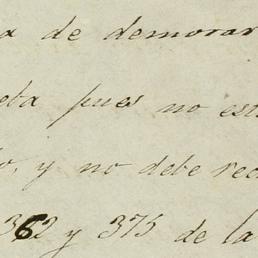 a de demorar
eta pues no est
o, y no debe rec
362 y 375 de la